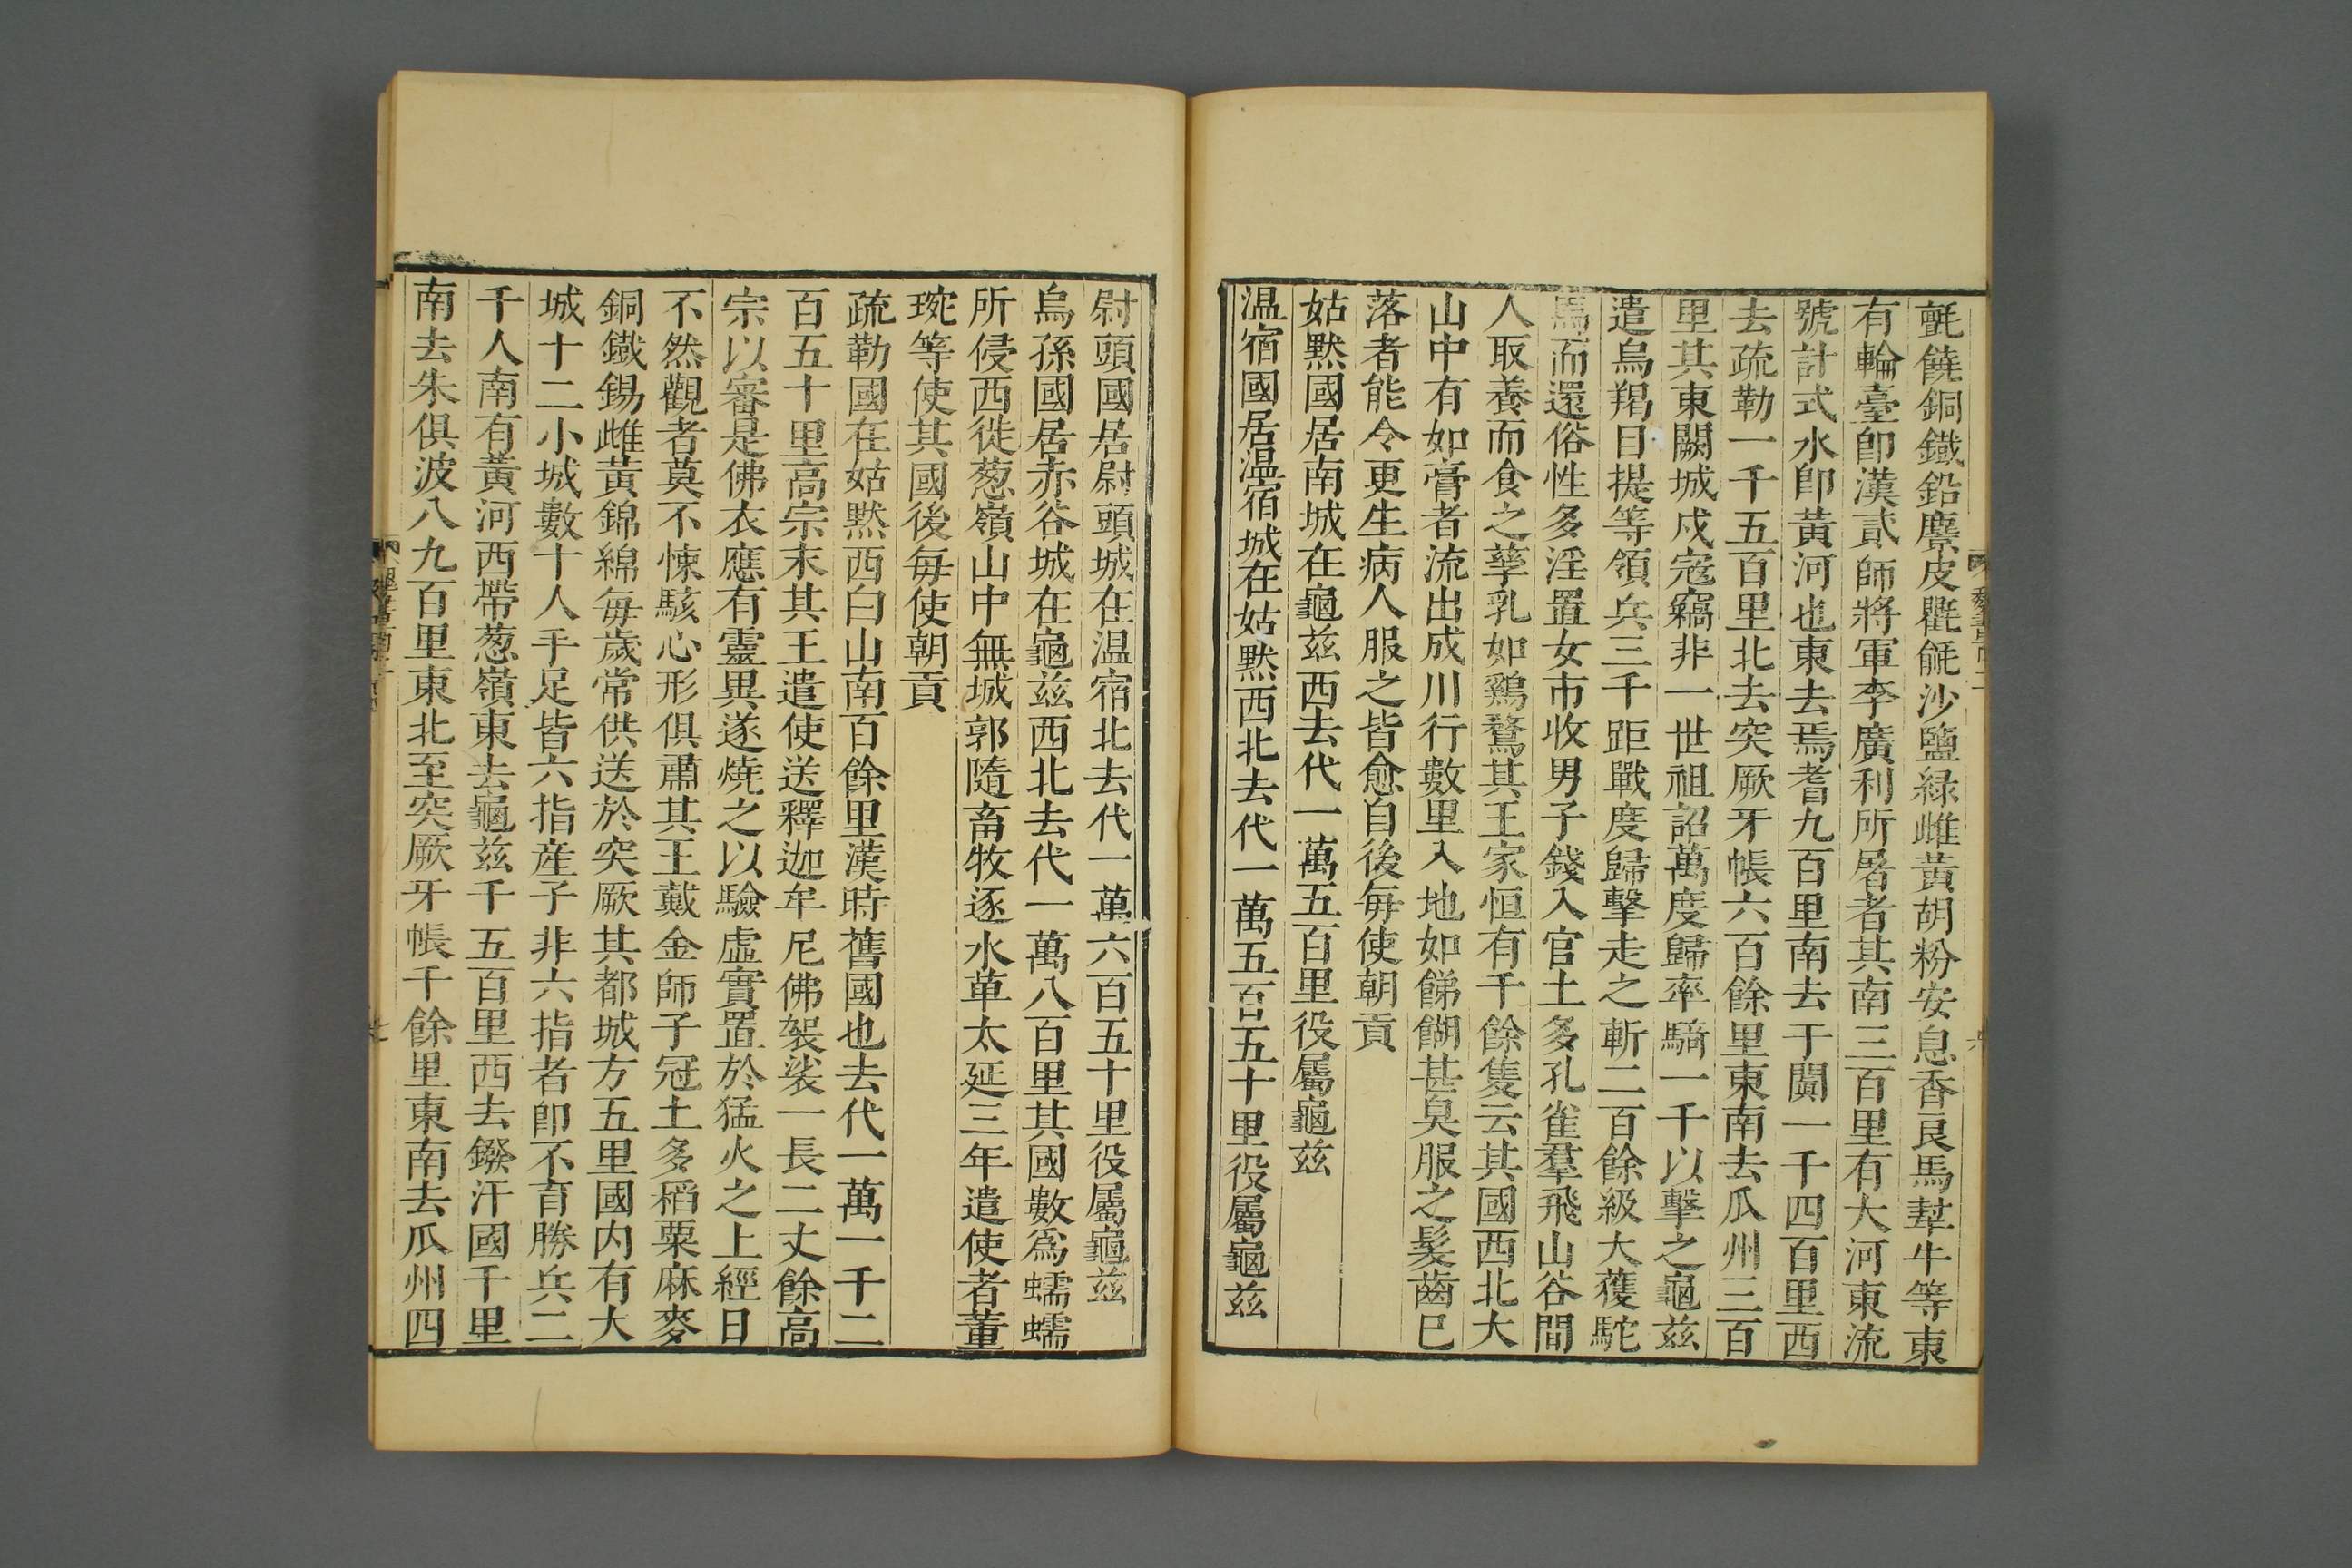 氈饒銅鐵鉛麖皮氍㲪沙鹽緑雌黃胡粉安息香良馬犎牛等東
有輪臺卽漢貳師將軍李廣利所屠者其南三百里有大河東流
號計式水卽黃河也東去焉耆九百里南去于闐一千四百里西
去疏勒一千五百里北去突厥牙帳六百餘里東南去瓜州三百
里其東闕城戍宼竊非一世祖詔萬度歸率騎一千以擊之龜茲
遣烏羯目提等領兵三千距戰度歸擊走之斬二百餘級大獲駝
馬而還俗性多淫置女市收男子錢入官土多孔雀羣飛山谷間
人取養而食之孳乳如鷄鶩其王家恒有千餘隻云其國西北大
山中有如膏者流出成川行數里入地如餳餬甚臭服之髮齒巳
落者能令更生病人服之皆愈自後每使朝貢
姑黙國居南城在龜茲西去代一萬五百里役屬龜茲
温宿國居温宿城在姑黙西北去代一萬五百五十里役屬龜茲
尉頭國居尉頭城在温宿北去代一萬六百五十里役屬龜茲
烏孫國居赤谷城在龜茲西北去代一萬八百里其國數爲蠕蠕
所侵西徙葱嶺山中無城郭隨畜牧逐水草太延三年遣使者董
琬等使其國後每使朝貢
疏勒國在姑黙西白山南百餘里漢時舊國也去代一萬一千二
百五十里高宗末其王遣使送釋迦牟尼佛袈裟一長二丈餘高
宗以審是佛衣應有靈異遂燒之以驗虛實置於猛火之上經日
不然觀者莫不悚駭心形俱肅其王戴金師子冠土多稻粟麻麥
銅鐵錫雌黃錦綿每歲常供送於突厥其都城方五里國内有大
城十二小城數十人手足皆六指産子非六指者卽不育勝兵二
千人南有黃河西帶葱嶺東去龜茲千五百里西去鏺汗國千里
南去朱俱波八九百里東北至突厥牙帳千餘里東南去瓜州四